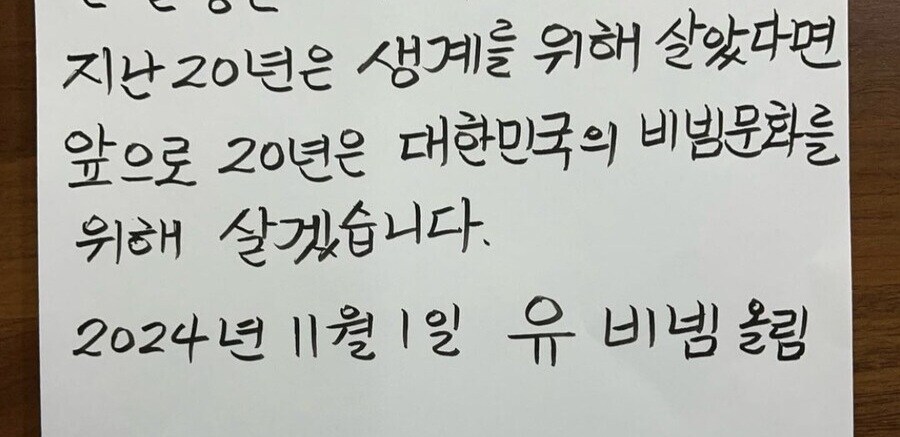 지난 20년은 생계를 위해 살았다면
앞으로 20년은 대한민국의 비빔문화를
위해 살겠습니다.
2024년 11월 1일 유 비빔 올림